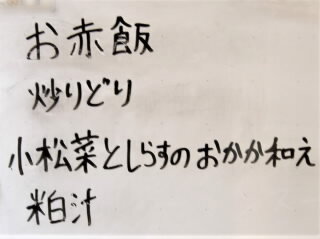 お赤飯
炒りどり
小松菜としらすのおかか和え
粕汁